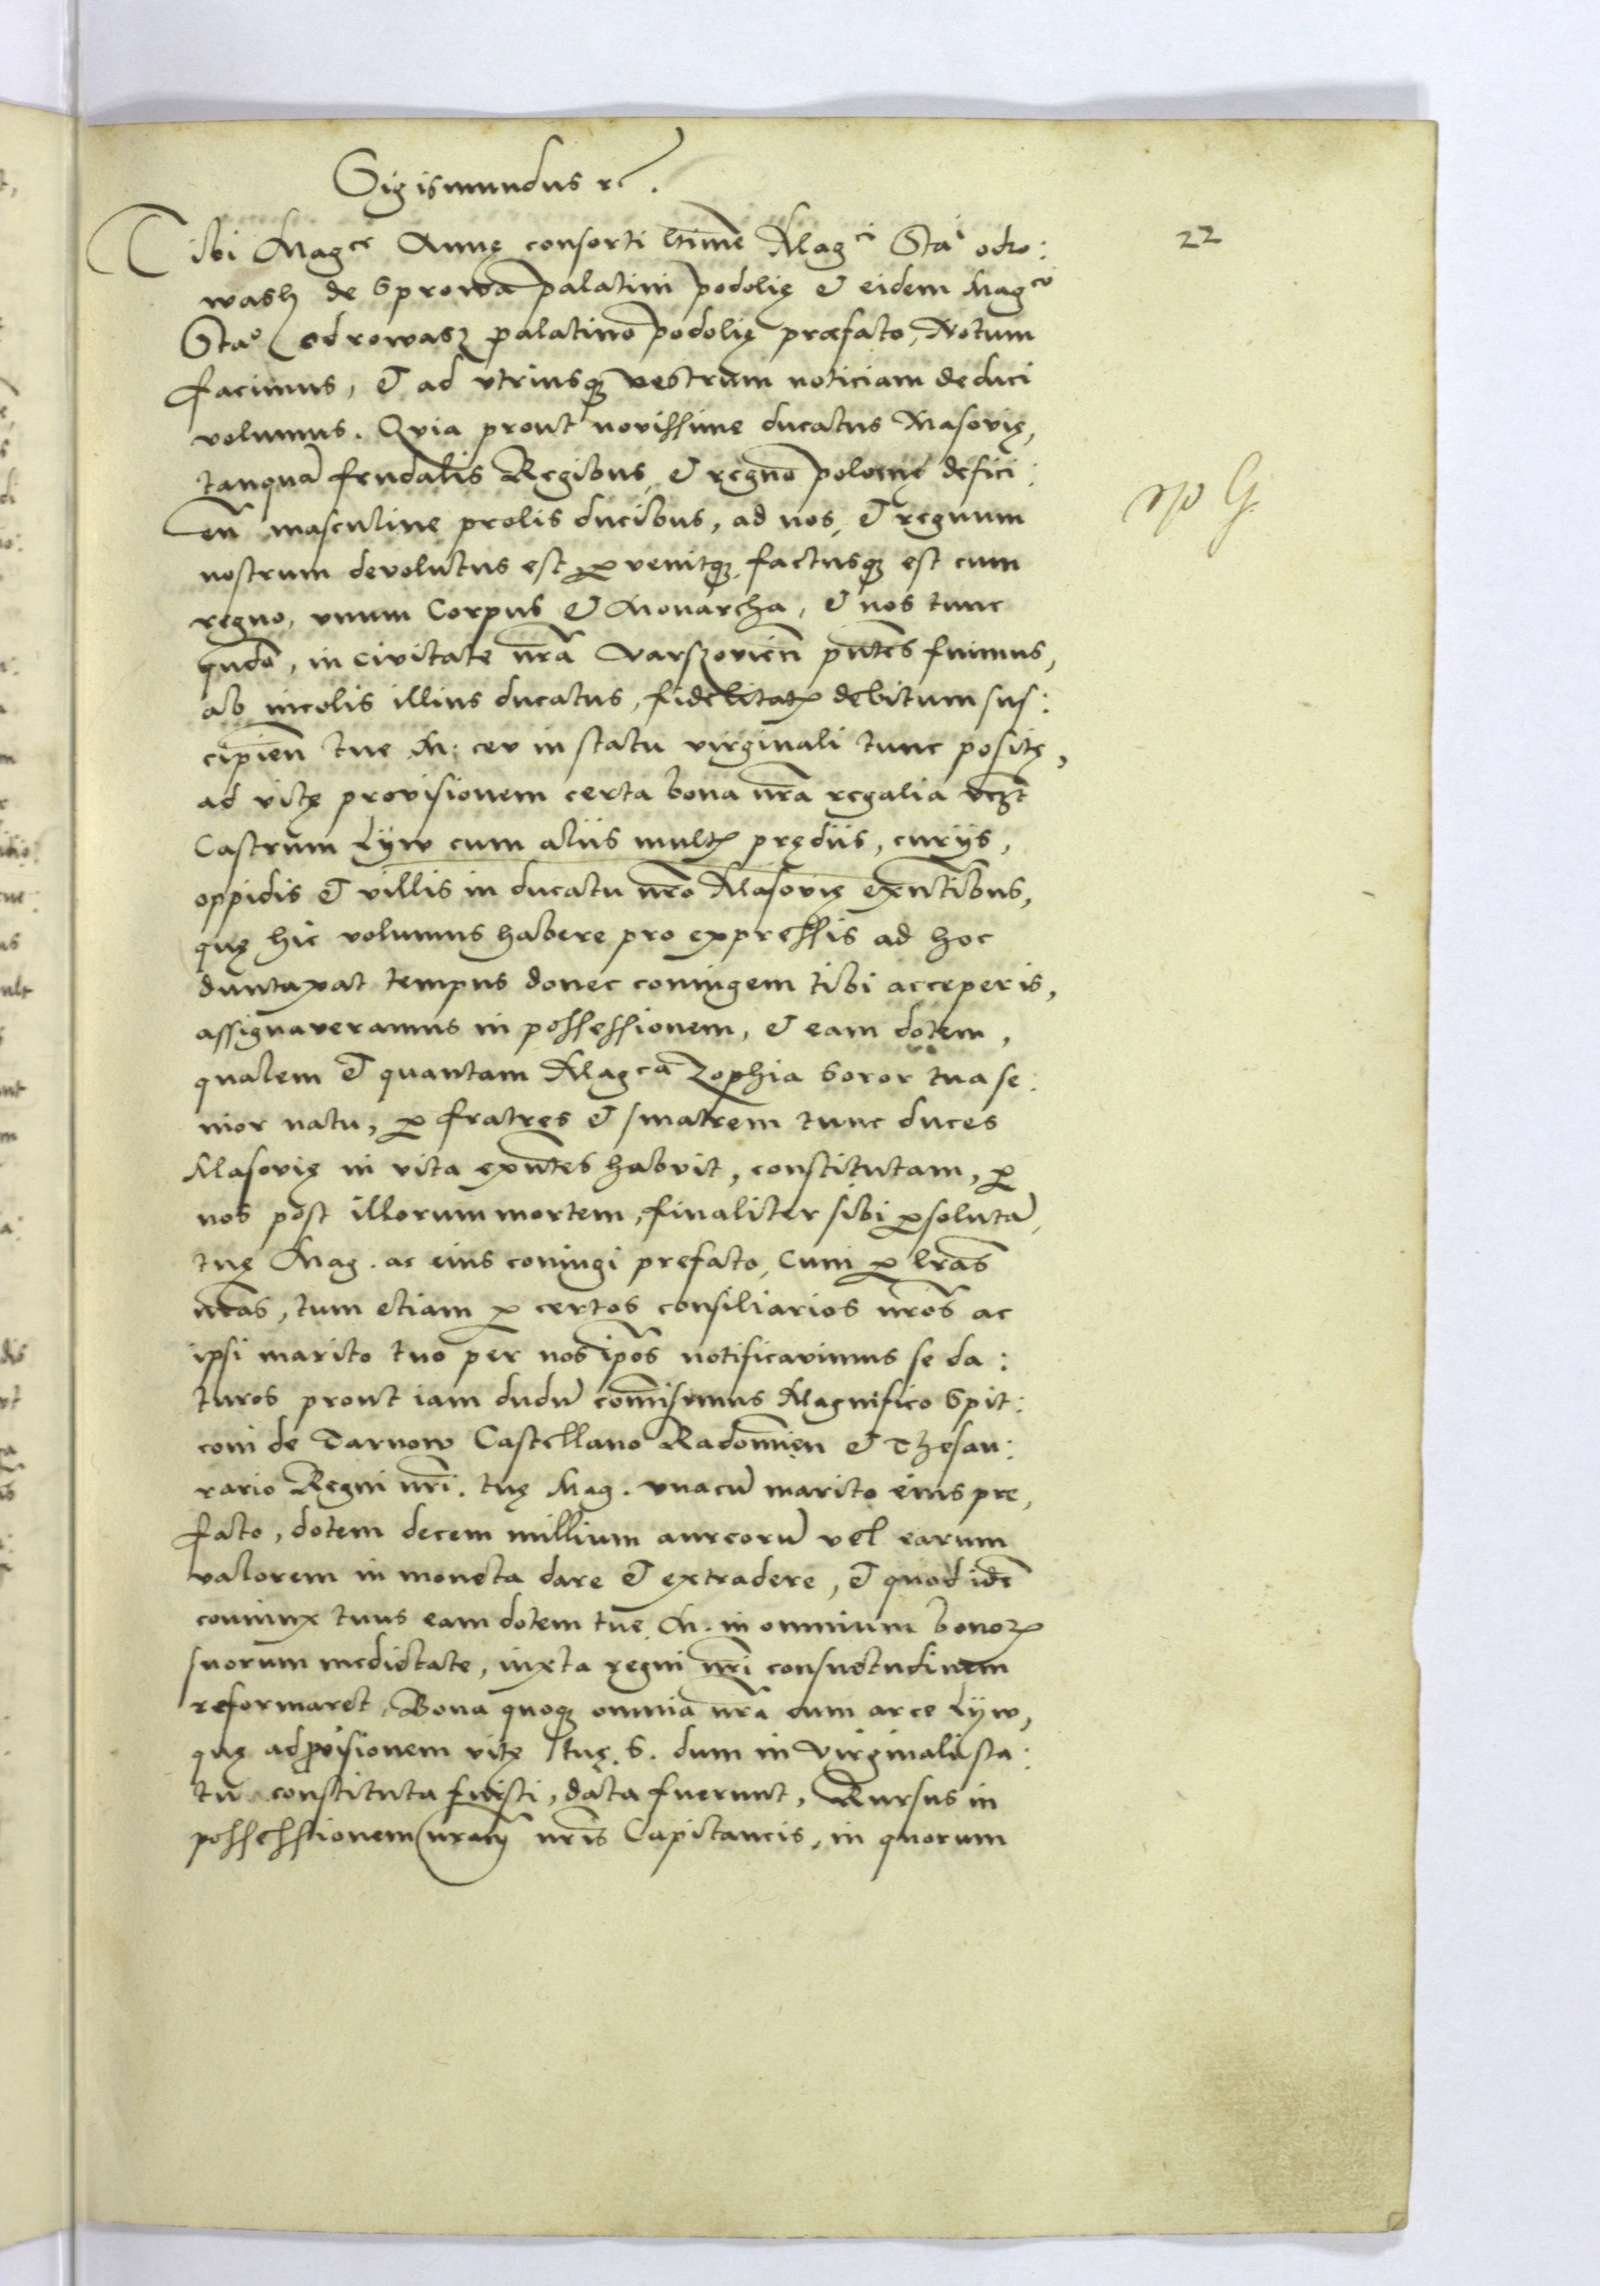 Sigismundus rc.
22
Tibi Magce Annę consorti ltime Magci Stai odro:
wąsh de Sprowa palatini podolię et eidem Magco
Stao odrowasz palatino podolię præfato, Notum
facimus, et ad vtriusq vestrum noticiam deduci
volumus. Quia prout novissime ducatus Masovię,
tanquā feudalis Regibus, et regno polonię defici:
en̄ masculinę prolis ducibus, ad nos, et regnum
nostrum devolutus est, pvenitq, factusq est cum
regno, vnum Corpus et Monarcha, et nos tunc
qn̄do, in civitate nr̄a Varszovien̄ pn̄tes fuimus,
ab incolis illius ducatus, fidelitatis debitum sus:
cipien̄ tuę M: ceu in statu virginali tunc positę,
ad vitę provisionem certa bona nr̄a regalia vczt
Castrum Lyw cum aliis multis prędiis, curijs,
oppidis et villis in ducatu nr̄o Masovię exn̄tibus,
quę hic volumus habere pro expressis ad hoc
duntaxat tempus donec coniugem tibi acceperis,
assignaveramus in possessionem, et eam dotem,
qualem et quantam Magca Zophia soror tua se:
nior natu, p fratres et matrem tunc duces
Masovię in vita exn̄tes habuit, constitutam, p
nos post illorum mortem, finaliter sibi psolutā,
tuę Mag. ac eius coniugi prefato, Cum p lr̄as
nr̄as, tum etiam p certos consiliarios nr̄os ac
ipsi marito tuo per nos ip̄os notificavimus se da:
turos prout iam dudū com̄isimus Magnifico Spit:
coni de Tarnow Castellano Radomien̄ et Thesau:
rario Regni nr̄i. tuę Mag. vnacū marito eius pre,
facto, dotem decem millium aureorū vel earum
valorem in moneta dare et extradere, et quod idē
coniunx tuus eam dotem tuę M. in omnium bonorum
suorum medietate, iuxta regni nr̄i consuetudinem
reformaret, Bona quoq omnia nr̄a cum arce Lyw,
quę ad pvisionem vitę tuę S. dum in virginali sta:
tu constituta fuisti, data fuerunt, Rursus in
possessionem nram̄ nr̄is Capitaneis, in quorum